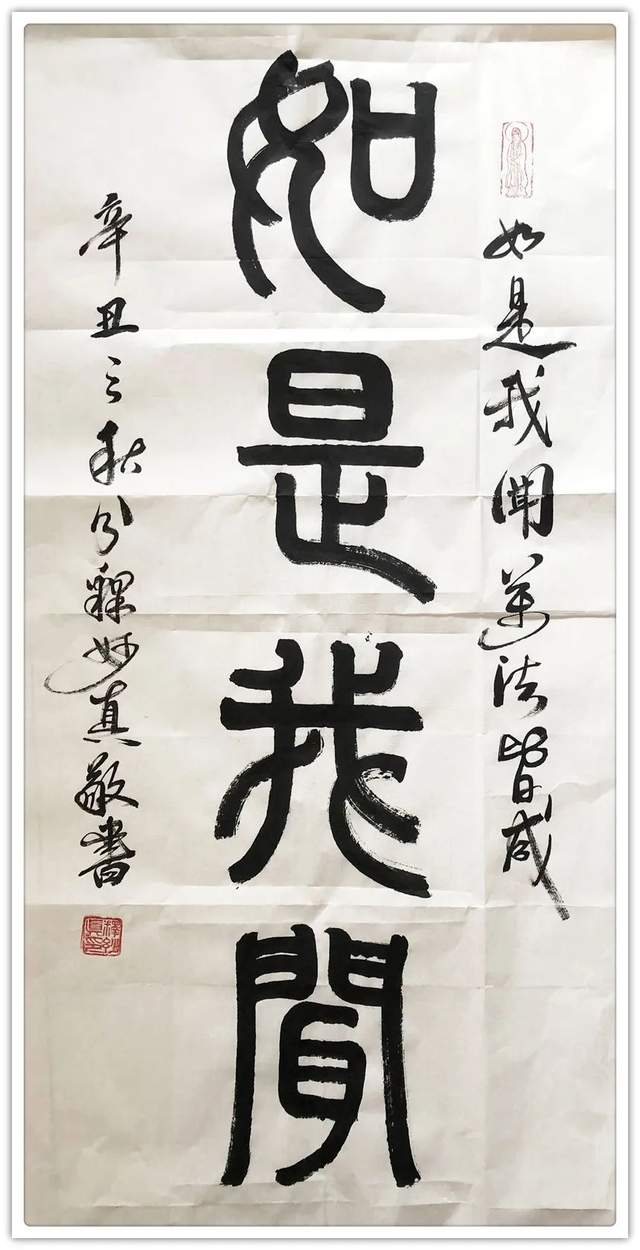 如是我聞萬法皆
如是我聞
辛丑之秋分釋妙真敬書
釋妙真印